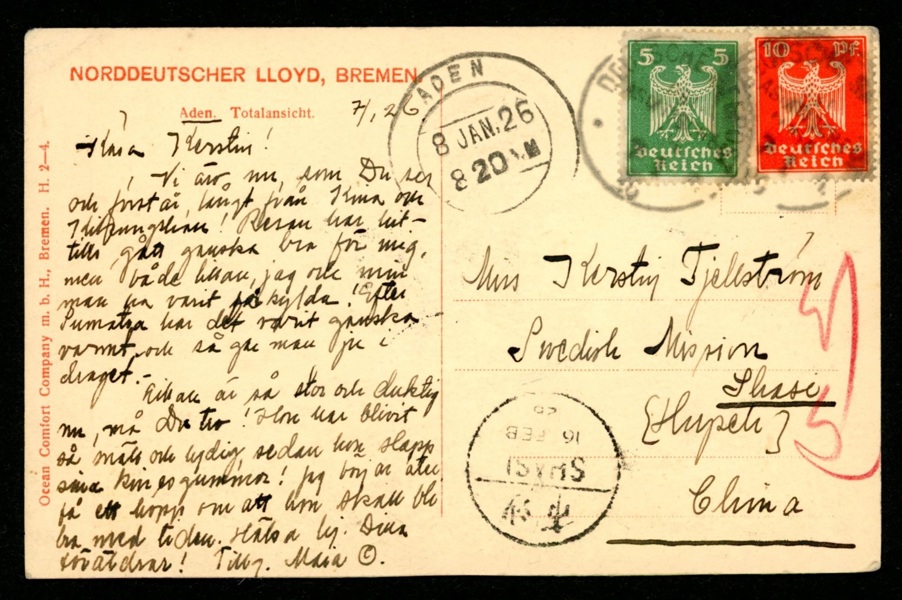 NORDDEUTSCHER LLOYD, BREMEN
Aden. Totalansicht.
7/1 26
Kära Kerstin!
Vi äro nu, som Du ser
och förstår, långt från Kina och
! Resan har hit-
tills gått ganska bra för mig,
men både Ellan, jag och min
man ha varit förkylda! Efter
Sumatra har det varit ganska
varmt, och så går man ju i
draget.-
Ellan är så stor och duktig
nu, må Du tro! Hon har blivit
så snäll och lydig sedan hon slapp
sina kinesgummor! Jag börjar åter
få ett hopp om att hon skall bli
bra med tiden. Hälsa hj. Dina
föräldrar! Tillg. Maia C.
Ocean Comfort Company m. b. H., Bremen. H. 2-4.
ADEN
8 JAN. 26
8 20 AM
5 5
Deutsches
Reich
10 Pf.
Deutsches
Reich
Miss Kerstin Tjellström
Swedish Mission
Shasi
[Hupeh]
China
SHASI
16 FEB
26
沙市